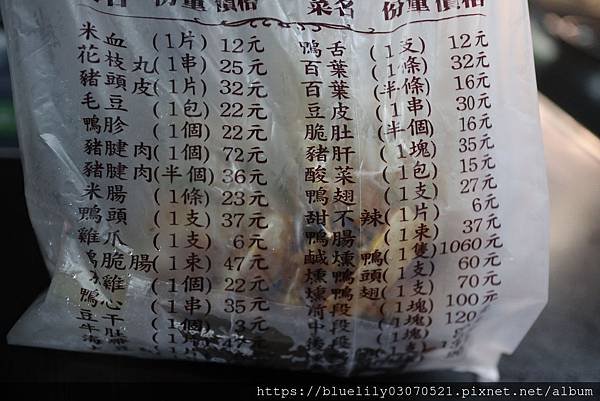 份量 價格
米血 (1片) 12元
花枝丸 (1串) 25元
豬頭皮 (1片) 32元
毛豆 (1包) 22元
鴨胗 (1個) 22元
豬腱肉 (1個) 72元
豬腱肉 (半個) 36元
米腸 (1條) 23元
鴨頭 (1支) 37元
雞爪 (1支) 6元
脆腸 (1束) 47元
鴨 (1個) 22元
心 (1串) 35元
豆干 (1個) 3元
菜名 份量 價格
鴨舌 (1支) 12元
百葉 (1條) 32元
百葉 (半條) 16元
豆皮 (1串) 30元
脆肚 (半個) 16元
豬肝 (1塊) 35元
酸菜 (1包) 15元
鴨翅 (1支) 27元
甜不辣 (1片) 6元
鴨腸 (1束) 37元
鹹燻鴨 (1隻) 1060元
燻鴨頭 (1支) 60元
燻鴨翅 (1支) 70元
前段 (1塊) 100元
中段 (1塊) 120元
https://bluelily03070521.pixnet.net/album